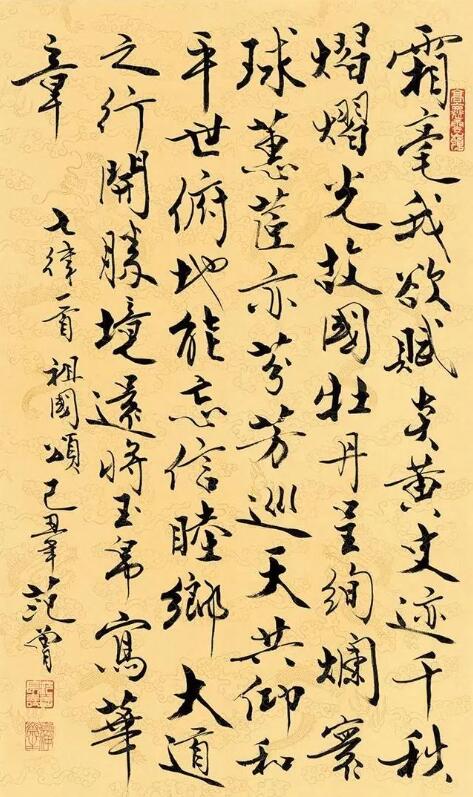 霜毫我欲賦炎黄史迹千秋
熠熠光故國牡丹呈絢爛寰
球蕙茝亦芬芳巡天共仰和
平世俯地能忘信睦鄉大道
之行開勝境還將玉帛寫華
章
七律一首祖國頌己丑年范曾